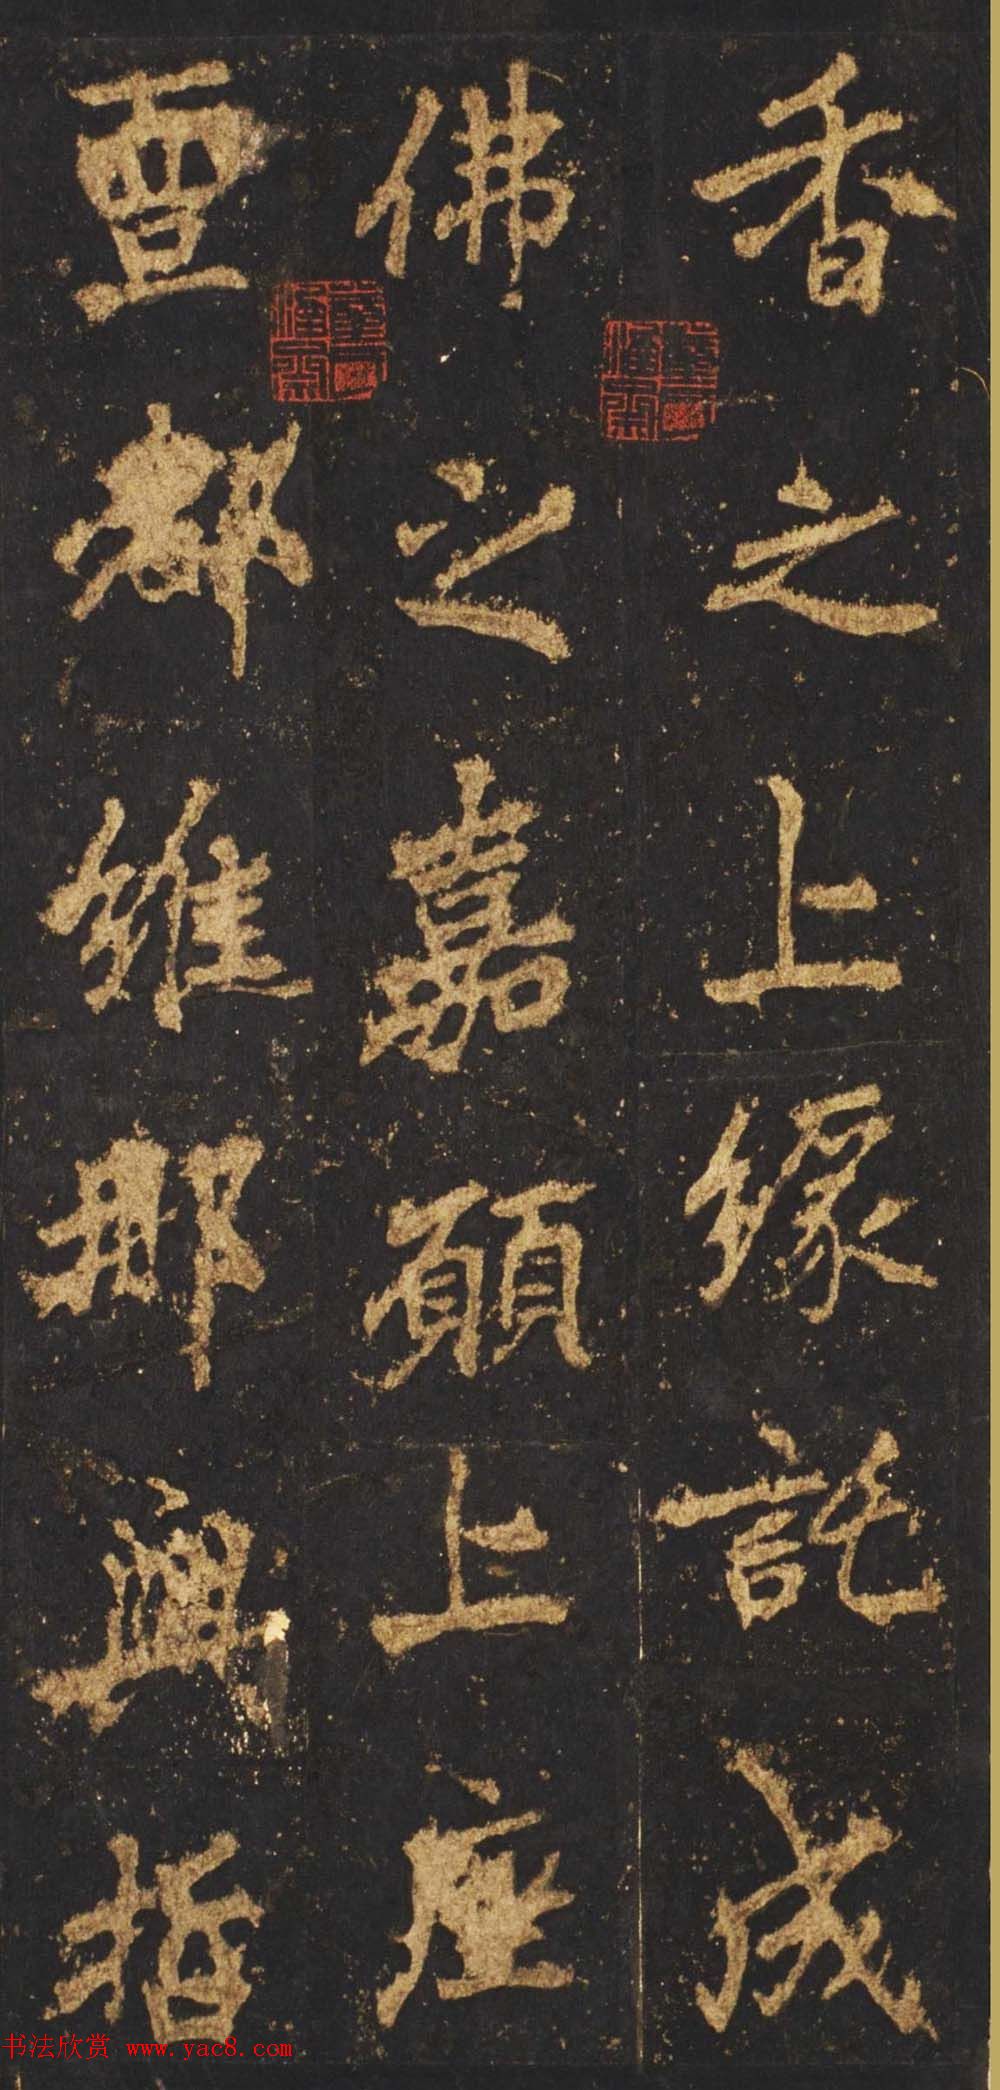 香之上緣託成
佛之嘉願上座
亶都維那興哲
书法欣赏 www.yac8.com